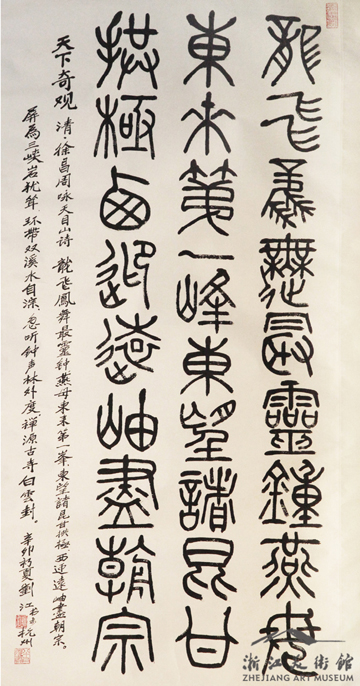 龍飛鳳舞最靈鍾燕母
東来第一峰東望諸昆甘
拱極西迎遠岫盡朝宗
天下奇观 清·徐昌周咏天目山诗 龍飛鳳舞最靈钟燕母東未第一峯東望諸昆甘拱極西迎遠岫盡朝宗。
屏為三峡岩犹耸环带双溪水自淙忽听钟声林外度禅源古寺白雲封。辛卯初夏劉江书于杭州
浙江美術館
ZHEJIANG ART MUSEUM